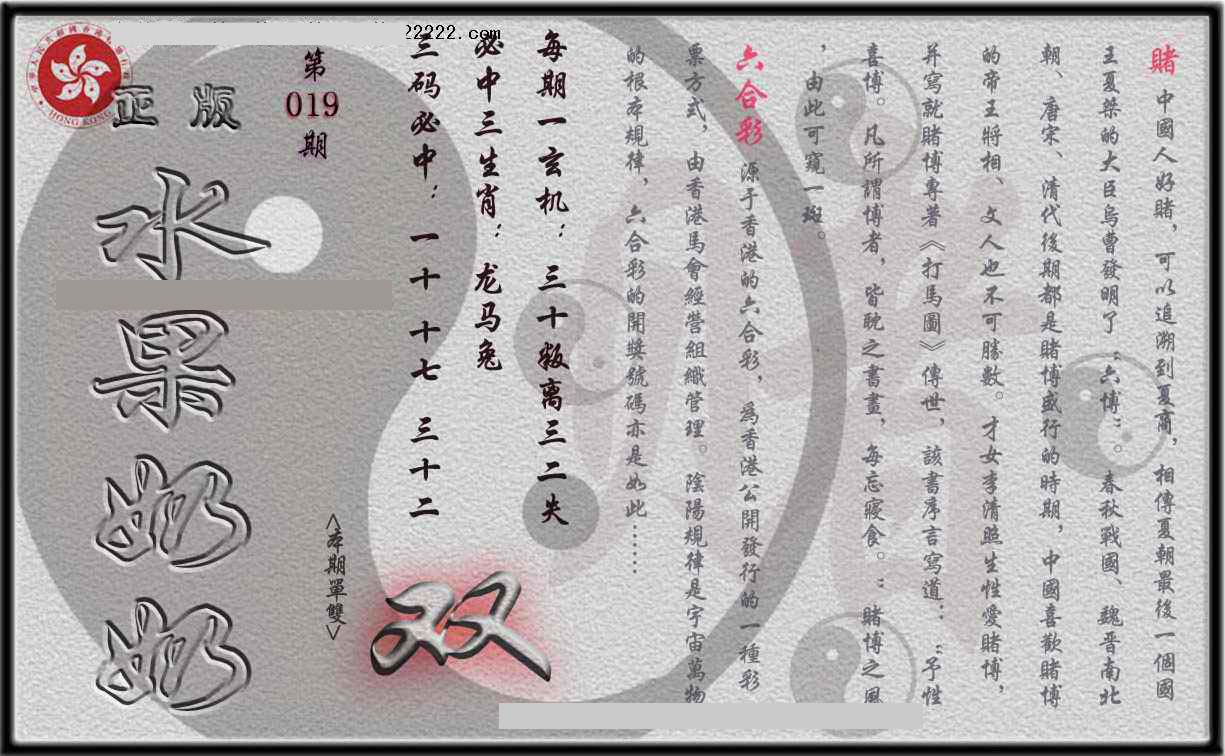 賭 中國人好賭，可以追溯到夏商，相傳夏朝最後一個國
王夏桀的大臣烏曹發明了“六博”。春秋戰國、魏晉南北
朝、唐宋、清代後期都是賭博盛行的時期，中國喜歡賭博
的帝王將相、文人也不可勝數。才女李清照生性愛賭博，
并寫就賭博專著《打馬圖》傳世，該書序言寫道：“予性
喜博。凡所謂博者，皆耽之書畫，每忘寢食。”賭博之風
，由此可窺一斑。
六合彩 源于香港的六合彩，為香港公開發行的一種彩
票方式，由香港馬會經營組織管理。陰陽規律是宇宙萬物
的根本規律，六合彩的開獎號碼亦是如此……
每期一玄机：三十叛离三二失
必中三生肖：龙马兔
三码必中：一十 十七 三十二
第
019
期
正版
水果奶奶
<本期單雙>
双
22222.com
HONG KONG